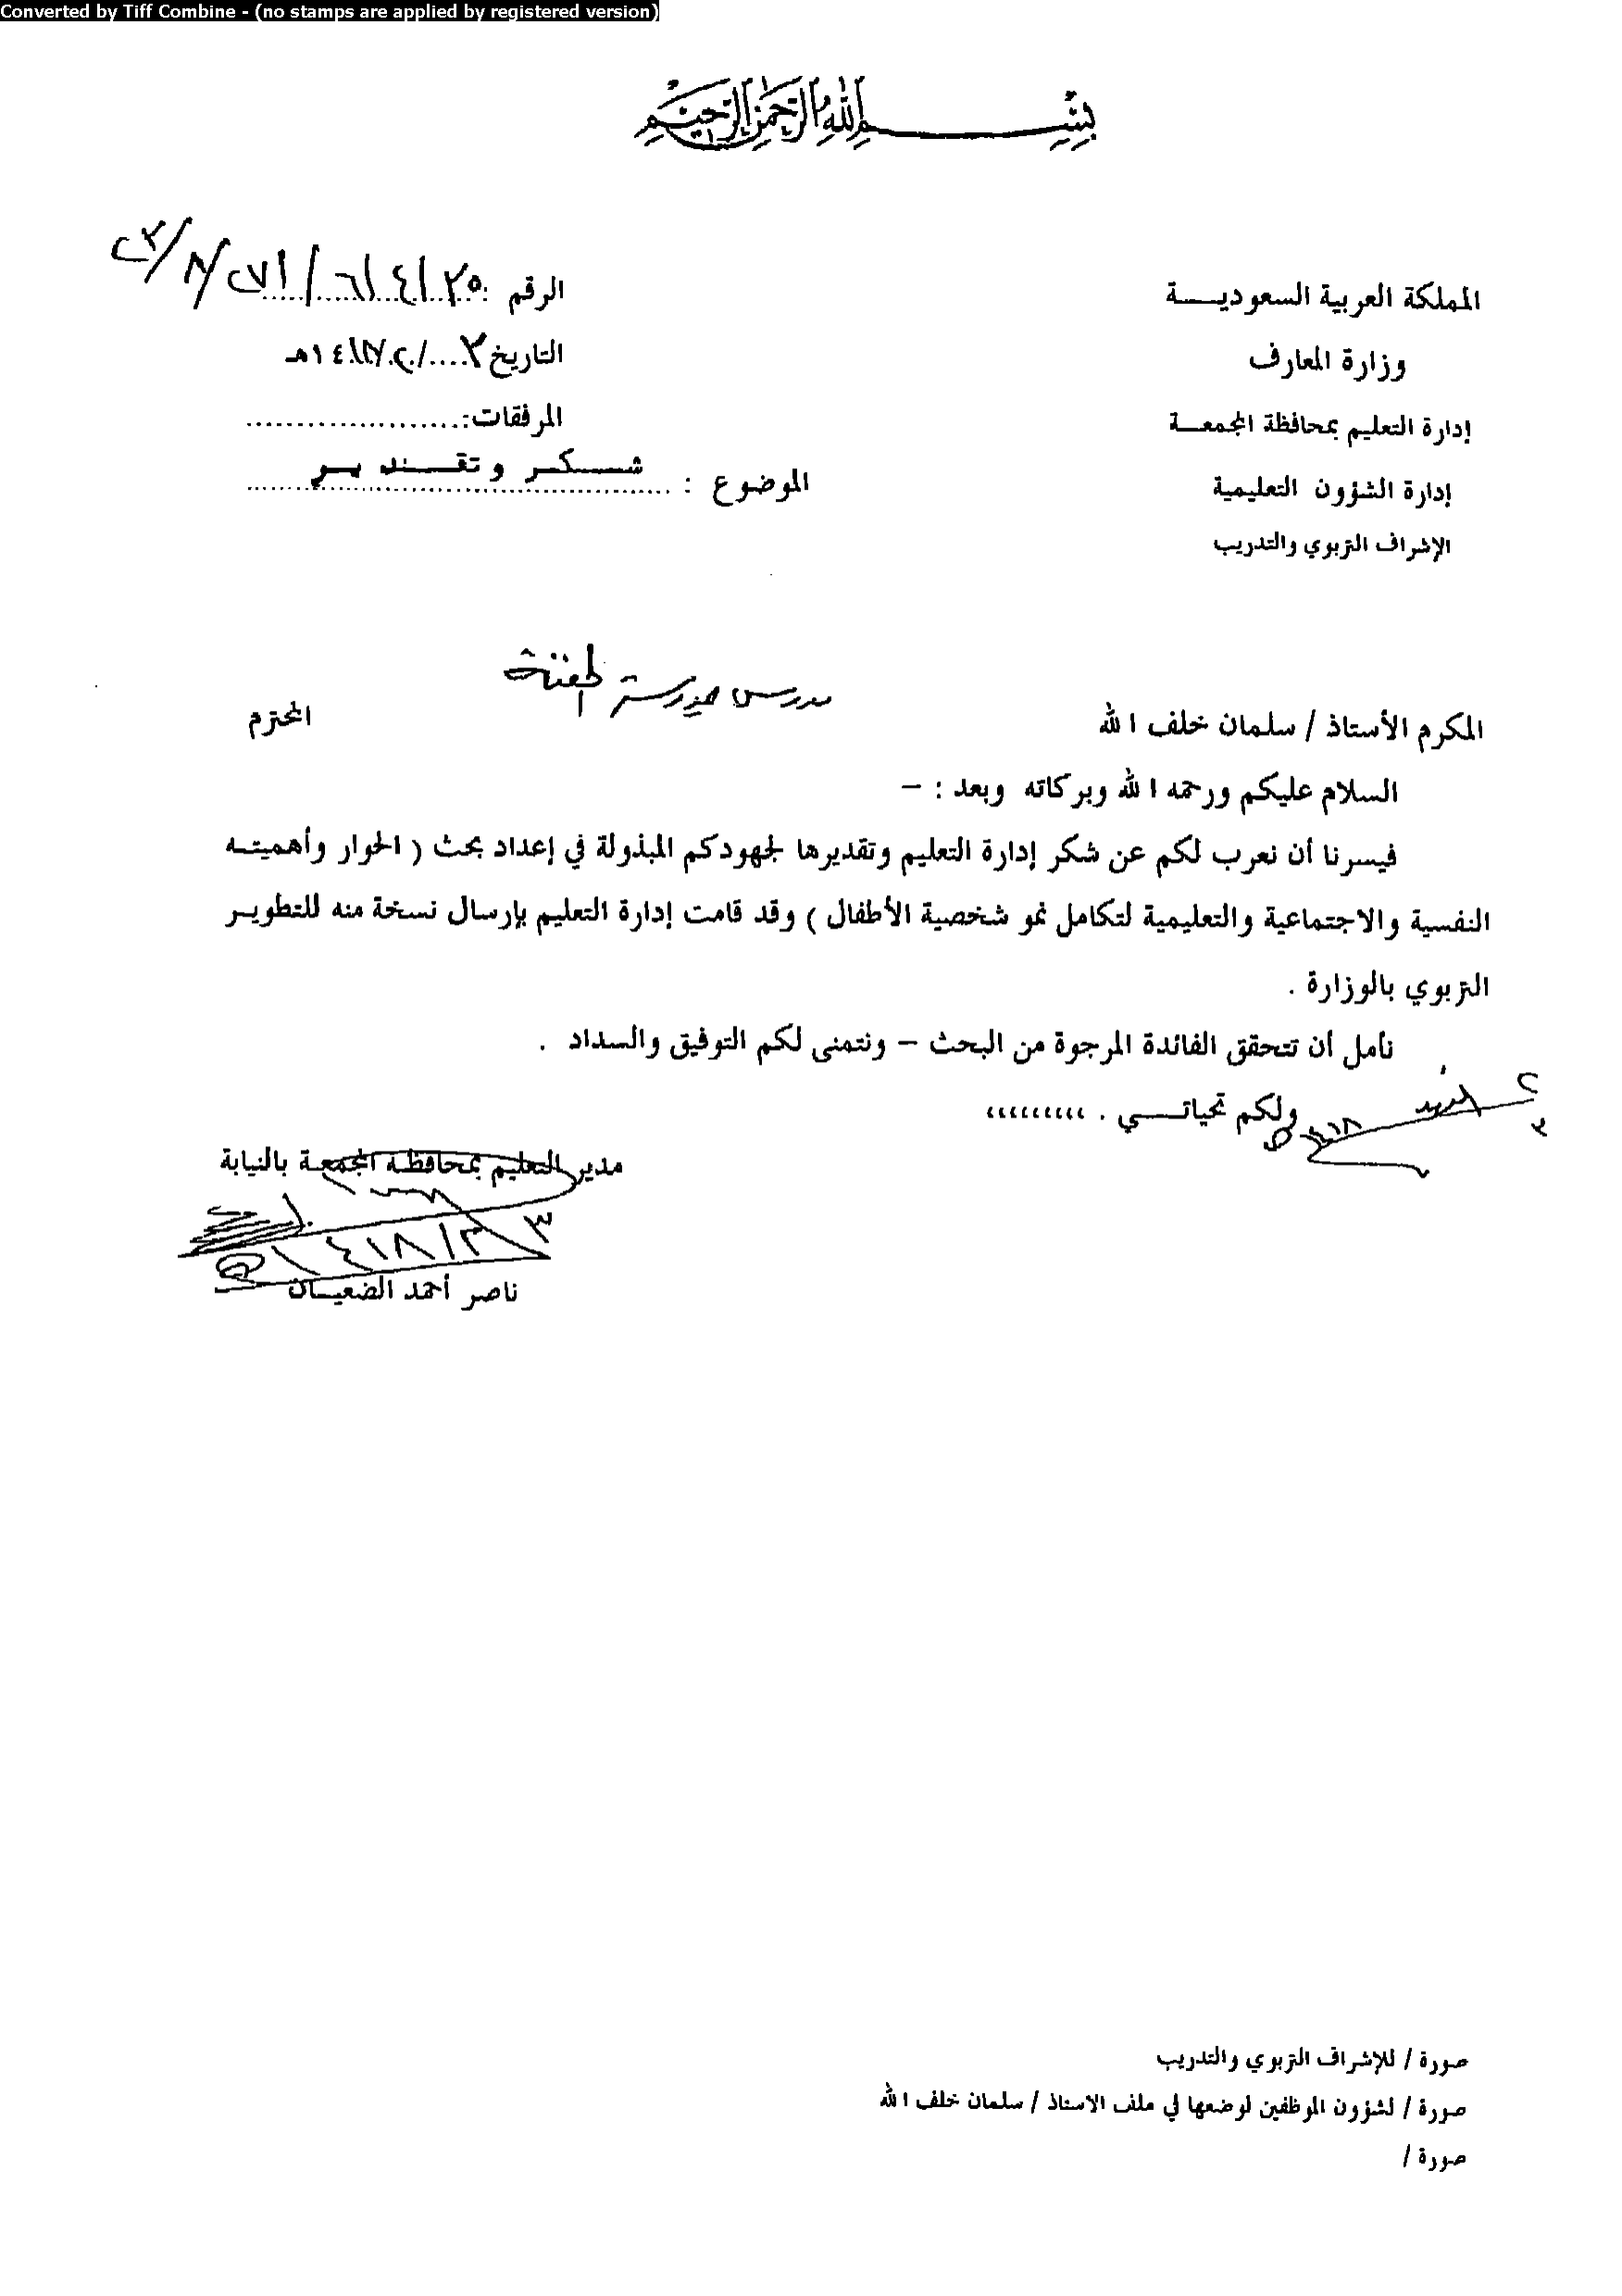 Converted by Tiff Combine - (no stamps are applied by registered version)
بسم الله الرحمن الرحيم
المملكة العربية السعوديـــة
وزارة المعارف
إدارة التعليم بمحافظة المجمعـــة
إدارة الشؤون التعليمية
الإشراف التربوي والتدريب
الرقم :
التاريخ ١٤هـ
المرفقات:
الموضوع : شـــكـــر وتقـــديـــر
المكرم الأستاذ / سلمان خلف الله مدرس المحترم
السلام عليكم ورحمه الله وبركاته وبعد : –
فيسرنا أن نعرب لكم عن شكر إدارة التعليم وتقديرها لجهودكم المبذولة في إعداد بحث ( الحوار وأهميتـــه
النفسية والاجتماعية والتعليمية لتكامل نمو شخصية الأطفال ) وقد قامت إدارة التعليم بإرسال نسخة منه للتطويـــر
التربوي بالوزارة .
نأمل أن تتحقق الفائدة المرجوة من البحث – ونتمنى لكم التوفيق والسداد .
ولكم تحياتـــي . ،،،،،،،،،
مدير التعليم بمحافظة المجمعة بالنيابة
ناصر أحمد الضعيـــان
صورة / للإشراف التربوي والتدريب
صورة / لشؤون الموظفين لوضعها في ملف الاستاذ / سلمان خلف الله
صورة /